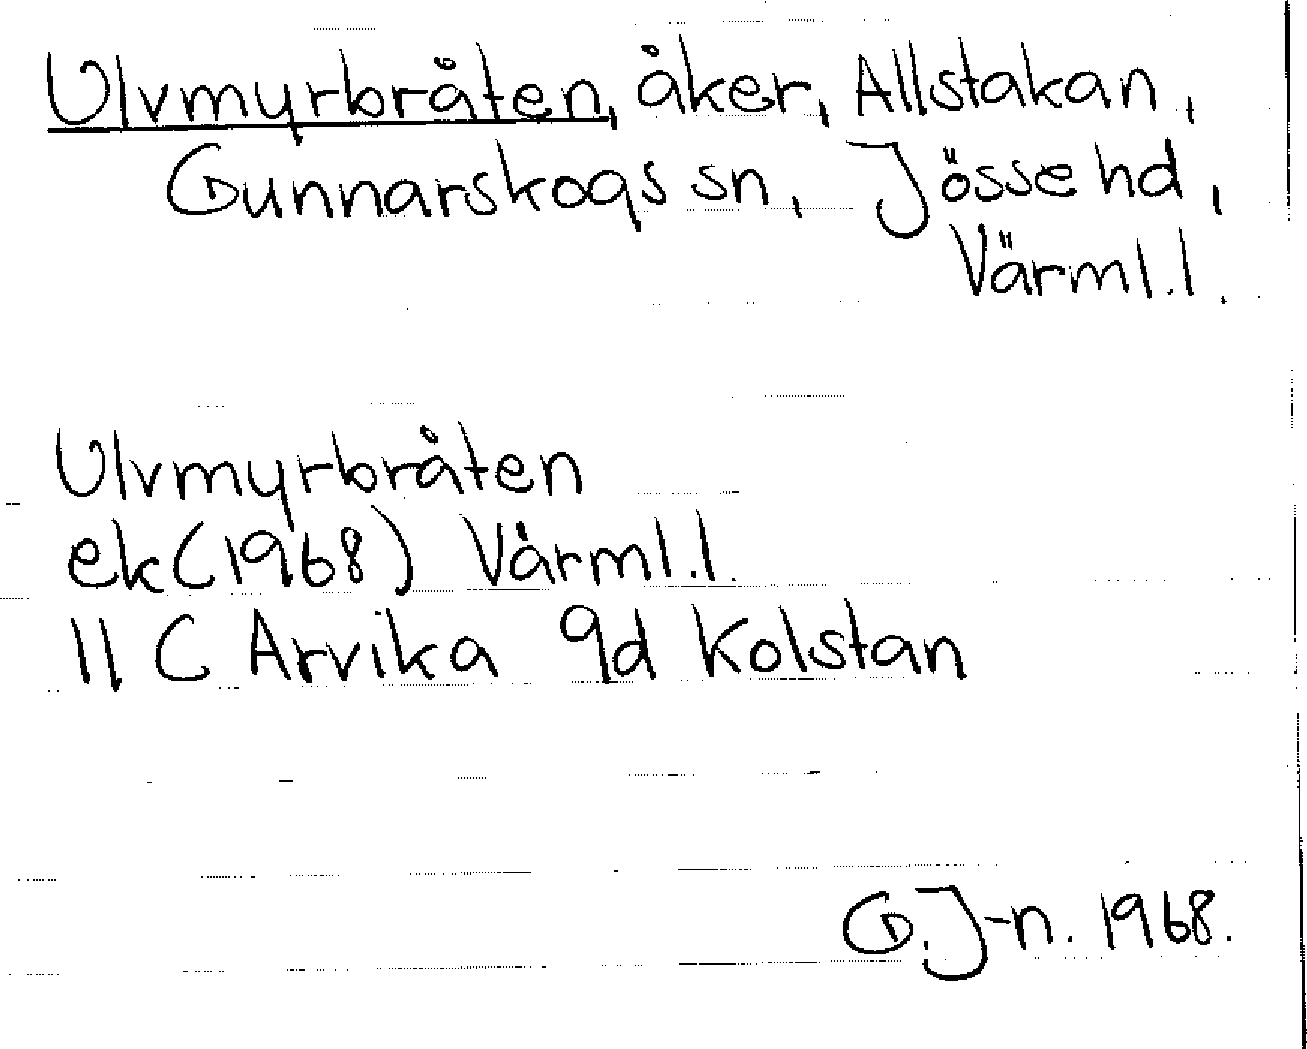 Ulvmyrbråten, åker, Allstakan,
Gunnarskogs sn, Jösse hd,
Värml. l.
Ulvmyrbråten
ek (1968) Värml. l.
11 C Arvika 9d Kolstan
G. J-n. 1968.